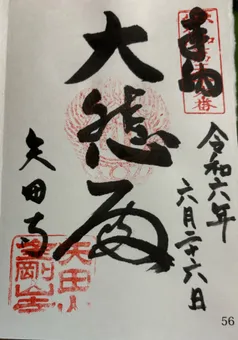 奉納
大
矢田寺
令和六年
六月二十六日
矢田山
金剛山寺
56